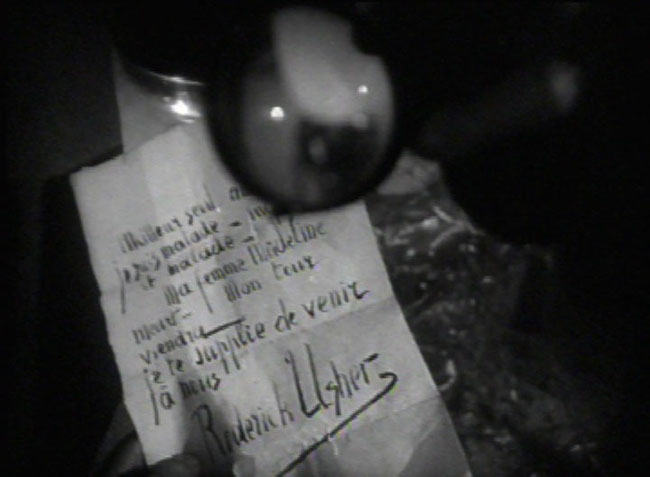 Meilleur seul
je suis malade –
et malade –
Ma femme Madeline
meurt – Mon tour
viendra
je te supplie de venir
à nous
Roderick Usher